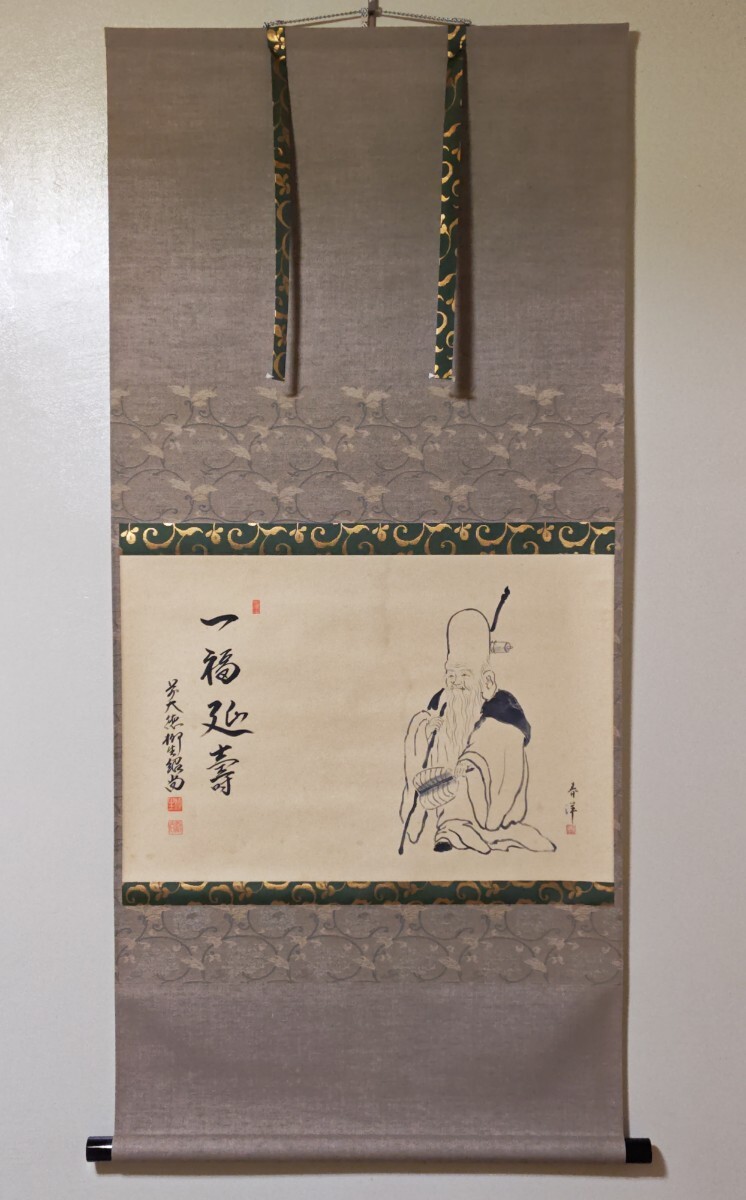 春洋
一福延壽
前大徳柳生紹尚